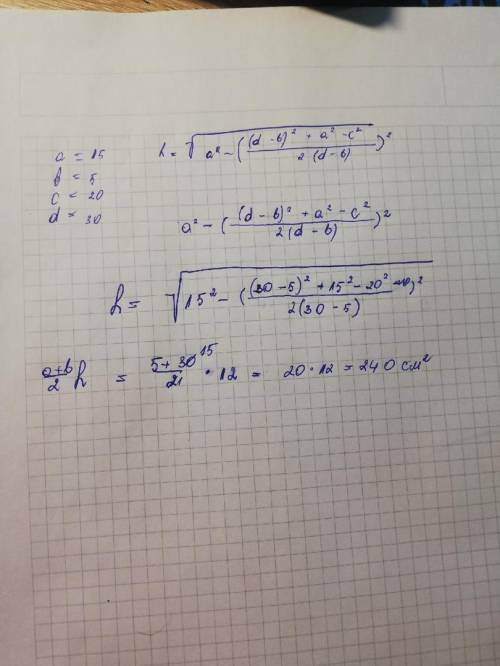 a = 15
b = 5
c = 20
d = 30
h = √(a² - (((d - b)² + a² - c²)/(2(d - b)))²)
a² - (((d - b)² + a² - c²)/(2(d - b)))²
h = √(15² - (((30 - 5)² + 15² - 20²)/(2(30 - 5)))²)
(a+b)/2 h = (5 + 30 15)/21 · 12 = 20 · 12 = 240 см²